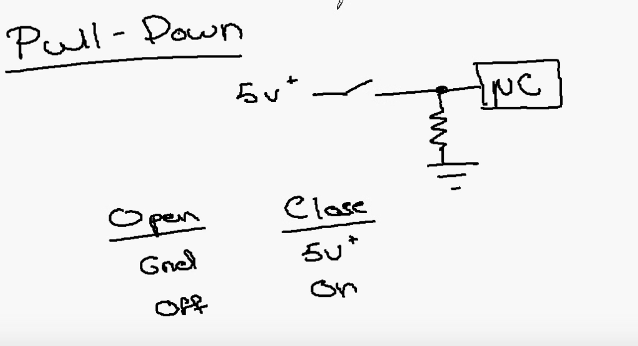 Pull-Down
5v+
µC
Open Close
Gnd 5v+
Off On